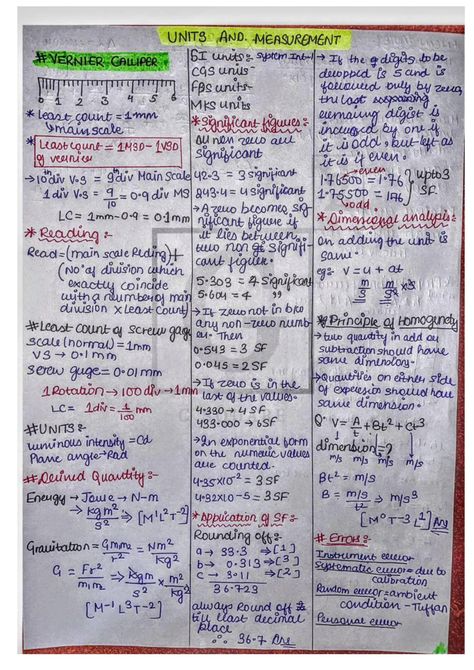 UNITS AND MEASUREMENT
# VERNIER CALLIPER
0 1 2 3 4 5 6
* Least count = 1mm
↳ main scale
* Least count = 1MSD - 1VSD
of vernier
→ 10 div V.S = 9 div Main Scale
1 div V.S = 9/10 = 0.9 div MS
LC = 1mm - 0.9 = 0.1mm
* Reading :-
Read = (main scale Reding) +
(No of division which
exactly coincide
with a number of main
division x least count)
# Least Count of screw gage
scale (normal) = 1mm
VS → 0.1mm
screw guge = 0.01mm
1 Rotation → 100 div → 1mm
LC = 1div = 1/100 mm
# UNITS :-
luminous intensity = Cd
Plane angle → Rad
# Derived Quantity :-
Energy → Joule → N-m
→ kgm²/s² ⇒ [M¹L²T⁻²]
Gravitation = Gmm/r² = Nm²/kg²
G = Fr²/m₁m₂ ⇒ kgm/s² x m²/kg²
[M⁻¹ L³ T⁻²]
SI units :- System Int
CGS units
FPS units
MKS units
* Significant figures :-
All non zero are
significant
42.3 = 3 significant
243.4 = 4 significant
→ A zero becomes sig-
nificant figure if
it lies between
two non ze signifi-
cant figure.
5.303 = 4 significant
5.604 = 4 "
→ If zero not in b/w
any non-zero numb-
er. Then
0.543 = 3 SF
0.045 = 2 SF
→ If zero is in the
last of the values-
4.330 → 4 SF
433.000 → 6 SF
→ In exponential form
on the numeric values
are counted.
4.35x10² = 3 SF
4.32x10-5 = 3 SF
* Application of SF :-
Rounding off :-
a → 33.3 → [1]
b → 0.313 → [3]
c → 3.11 → [2]
36.723
always Round off
till least decimal
place
∴ 36.7 Ans
→ If the digits to be
dropped is 5 and is
followed only by zero,
the last
remaing digist is
increased by one if
it is odd, but left as
it is if even.
even
1.76500 = 1.76
1.75500 = 176
odd
upto 3
SF
* Dimensional analysis :-
On adding the unit is
same.
eg:- v = u + at
m/s m/s²xs
* Principle of Homogundy
→ two quantity in add or
subtraction should have
same dimensions.
→ Quantities on either side
of expresion should have
same dimension.
Q' V = A/t + Bt² + Ct³
dimention = ?
m/s m/s m/s m/s
Bt² = m/s
B = m/s/t² ⇒ m/s³
[M⁰ T-3 L¹] Ans
# Errors :-
Instrument error
Systematic error = due to
calibration
Random error = ambient
condition - Tuffan
Personal error